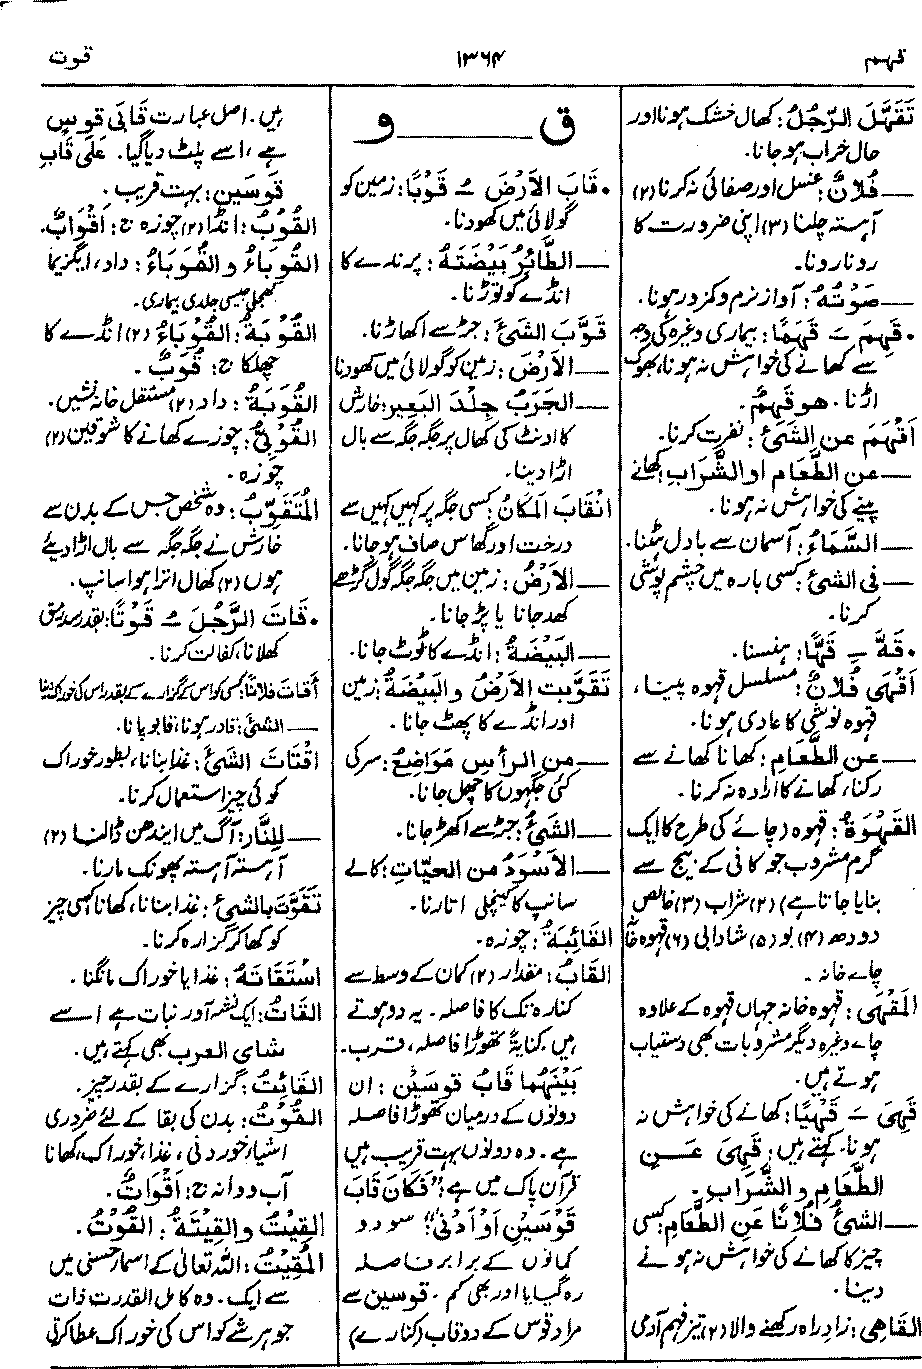 قہم
۱۳۶۴
قوت
تَقَهَّلَ الرَّجُلُ: کھال خشک ہونا اور
حال خراب ہوجانا.
— فُلَانٌ: غسل اور صفائی نہ کرنا (۲)
آہستہ چلنا (۳) اپنی ضرورت کا
رونا رونا.
— صَوْتُهُ: آواز نرم و کمزور ہونا.
• قَهِمَ ـَ قَهَمًا: بیماری وغیرہ کی وجہ
سے کھانے کی خواہش نہ ہونا، بھوک
اڑنا. هو قَهِمٌ.
أَقْهَمَ عن الشَّیْءِ: نفرت کرنا.
— عن الطَّعَامِ او الشَّرَابِ: کھانے
پینے کی خواہش نہ ہونا.
— السَّمَاءُ: آسمان سے بادل ہٹنا.
— فی الشَّیْءِ: کسی بارہ میں چشم پوشی
کرنا.
• قَهَّ ـِ قَهًّا: ہنسنا.
أَقْهَی فُلَانٌ: مسلسل قہوہ پینا،
قہوہ نوشی کا عادی ہونا.
— عن الطَّعَامِ: کھانا کھانے سے
رکنا، کھانے کا ارادہ نہ کرنا.
القَهْوَةُ: قہوہ (چائے کی طرح کا ایک
گرم مشروب جو کافی کے بیج سے
بنایا جاتا ہے) (۲) شراب (۳) خالص
دودھ (۴) بو (۵) شادابی (۶) قہوہ خانہ
چائے خانہ.
المَقْهَی: قہوہ خانہ جہاں قہوہ کے علاوہ
چائے وغیرہ دیگر مشروبات بھی دستیاب
ہوتے ہیں.
قَهِیَ ـَ قَهْیًا: کھانے کی خواہش نہ
ہونا. کہتے ہیں: قَهِیَ عَن
الطَّعَامِ والشَّرَابِ.
— الشَّیْءُ فُلَانًا عَنِ الطَّعَامِ: کسی
چیز کا کھانے کی خواہش نہ ہونے
دینا.
القَاهِی: زادِ راہ رکھنے والا (۲) تیز فہم آدمی
ق — و
• قَابَ الأَرْضَ ـُ قَوْبًا: زمین کو
گولائی میں کھودنا.
— الطَّائِرُ بَیْضَتَهُ: پرندے کا
انڈے کو توڑنا.
قَوَّبَ الشَّیْءَ: جڑ سے اکھاڑنا.
— الأَرْضَ: زمین کو گولائی میں کھودنا
— الجَرَبُ جِلْدَ البَعِیرِ: خارش
کا اونٹ کی کھال پر جگہ جگہ سے بال
اڑا دینا.
انْقَابَ المَکَانُ: کسی جگہ پر کہیں کہیں سے
درخت اور گھاس صاف ہوجانا.
— الأَرْضُ: زمین میں جگہ جگہ گول گڑھے
کھد جانا یا پڑ جانا.
— البَیْضَةُ: انڈے کا ٹوٹ جانا.
تَقَوَّبَت الأَرْضُ والبَیْضَةُ: زمین
اور انڈے کا پھٹ جانا.
— من الرأسِ مَوَاضِعُ: سر کی
کئی جگہوں کا چھل جانا.
— الشَّیْءُ: جڑ سے اکھڑ جانا.
— الأَسْوَدُ من الحَیَّاتِ: کالے
سانپ کا کینچلی اتارنا.
القَائِبَةُ: چوزہ.
القَابُ: مقدار (۲) کمان کے وسط سے
کنارہ تک کا فاصلہ. یہ دو ہوتے
ہیں. کنایۃً تھوڑا فاصلہ، قرب.
بَیْنَهُما قَابُ قَوسَیْنِ: ان
دونوں کے درمیان تھوڑا فاصلہ
ہے. وہ دونوں بہت قریب ہیں
قرآن پاک میں ہے: "فَکَانَ قَابَ
قَوْسَیْنِ أَوْ أَدْنَی" سو دو
کمانوں کے برابر فاصلہ
رہ گیا یا اور بھی کم. قوسین سے
مراد قوس کے دو قاب (کنارے)
ہیں. اصل عبارت قَابَی قَوسٍ
ہے، اسے پلٹ دیا گیا. عَلَی قَابِ
قَوسَیْن: بہت قریب.
القُوبُ: انڈا (۲) چوزہ ج: أَقْوَابٌ.
القُوبَاءُ و القُوَبَاءُ: داد، ایگزیما
کھجلی جیسی جلدی بیماری.
القُوبَةُ: القُوبَاءُ (۲) انڈے کا
چھلکا ج: قُوَبٌ.
القُوَبَةُ: داد (۲) مستقل خانہ نشیں.
القُوبِیُّ: چوزے کھانے کا شوقین (۲)
چوزہ.
المُتَقَوِّبُ: وہ شخص جس کے بدن سے
خارش نے جگہ جگہ سے بال اڑا دیئے
ہوں (۲) کھال اترا ہوا سانپ.
• قَاتَ الرَّجُلَ ـُ قَوْتًا: بقدر سدرمق
کھلانا، کفالت کرنا.
أَقَاتَ فُلَانًا: کسی کو اس کے گزارے کے بقدر اس کی خوراک دینا
— الشئَ: قادر ہونا، قابو پانا.
اقْتَاتَ الشَّیْءَ: غذا بنانا، بطور خوراک
کوئی چیز استعمال کرنا.
— لِلنَّارِ: آگ میں ایندھن ڈالنا (۲)
آہستہ آہستہ پھونک مارنا.
تَقَوَّتَ بالشَّیْءِ: غذا بنانا، کھانا، کسی چیز
کو کھا کر گزارہ کرنا.
اسْتَقَاتَهُ: غذا یا خوراک مانگنا.
القَاتُ: ایک نشہ آور نبات ہے اسے
شای العرب بھی کہتے ہیں.
القَائِتُ: گزارے کے بقدر چیز.
القُوْتُ: بدن کی بقا کے لئے ضروری
اشیاء خوردنی، غذا، خوراک، کھانا
آب و دانہ ج: أَقْوَاتٌ.
القِیْتُ والقِیْتَةُ: القُوْتُ.
المُقِیْتُ: اللہ تعالیٰ کے اسماء حسنیٰ میں
سے ایک. وہ کامل القدرت ذات
جو ہر شے کو اس کی خوراک عطا کرتی